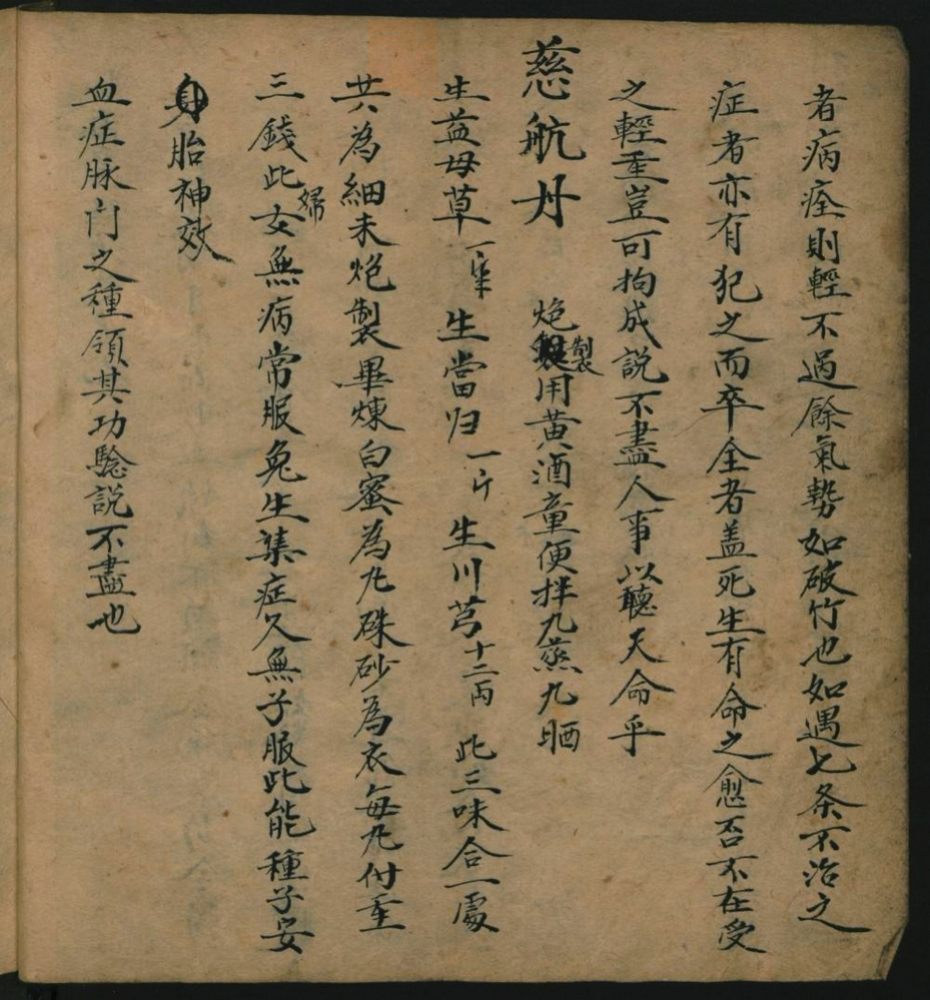 者病痊則輕不過餘氣勢如破竹也如遇七条不治之
症者亦有犯之而卒全者盖死生有命之愈否不在受
之輕重豈可拘成説不盡人事以聽天命乎
慈航丹 炮製用黄酒童便拌九蒸九晒
生益母草 生當归一斤 生川芎十二両 此三味合一處
共為細末炮製畢煉白蜜為丸硃砂為衣每丸付重
三錢此婦女無病常服免生集症久無子服此能種子安
身胎神效
血症脉门之種領其功驗説不盡也